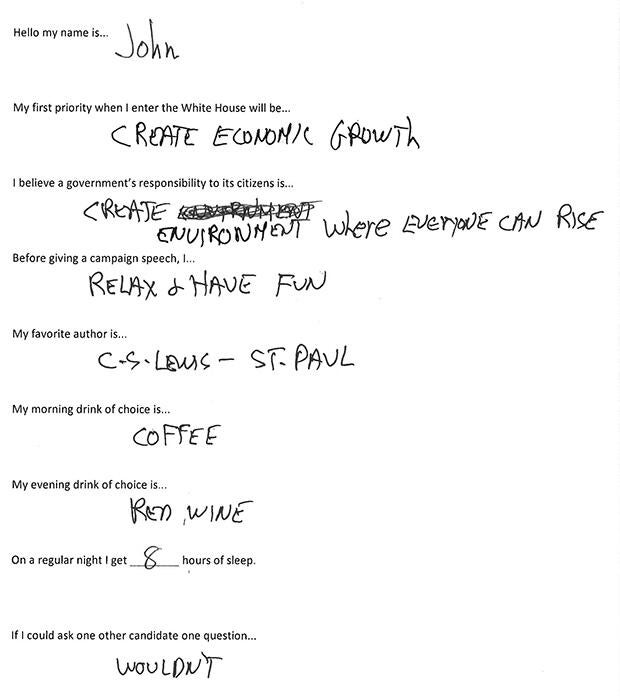 Hello my name is...
John
My first priority when I enter the White House will be...
CREATE ECONOMIC GROWTH
I believe a government's responsibility to its citizens is...
CREATE
ENVIRONMENT WHERE EVERYONE CAN RISE
Before giving a campaign speech, I...
RELAX & HAVE FUN
My favorite author is...
C.S. LEWIS – ST. PAUL
My morning drink of choice is...
COFFEE
My evening drink of choice is...
RED WINE
On a regular night I get 8 hours of sleep.
If I could ask one other candidate one question...
WOULDN'T